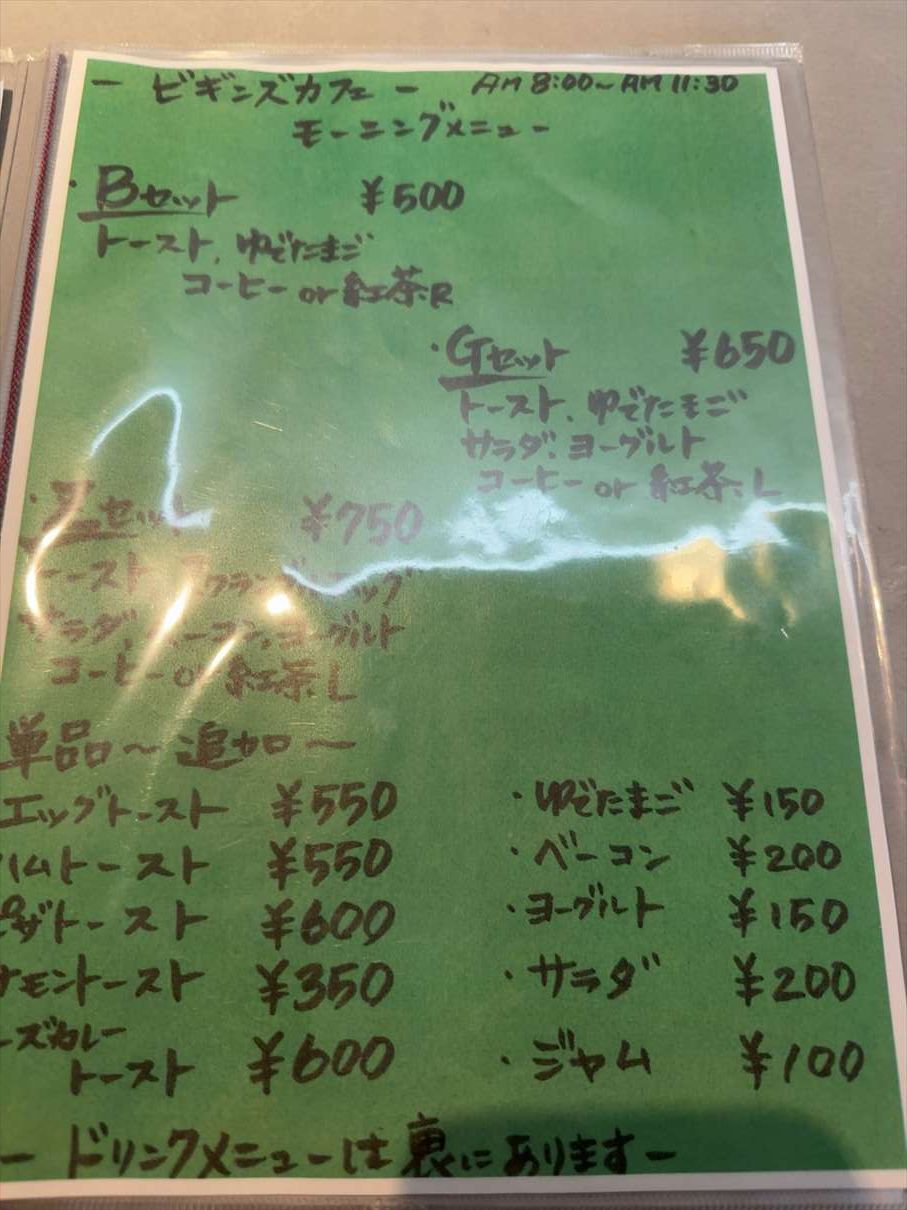 - ビギンズカフェ - AM 8:00~AM 11:30
モーニングメニュー
・Bセット ¥500
トースト、ゆでたまご
コーヒー or 紅茶R
・Gセット ¥650
トースト、ゆでたまご
サラダ、ヨーグルト
コーヒー or 紅茶L
・Zセット ¥750
トースト スクランブルエッグ
サラダ、ベーコン、ヨーグルト
コーヒー or 紅茶L
単品~追加~
エッグトースト ¥550
ハムトースト ¥550
ピザトースト ¥600
ナモントースト ¥350
ーズカレー
トースト ¥600
・ゆでたまご ¥150
・ベーコン ¥200
・ヨーグルト ¥150
・サラダ ¥200
・ジャム ¥100
- ドリンクメニューは裏にあります -